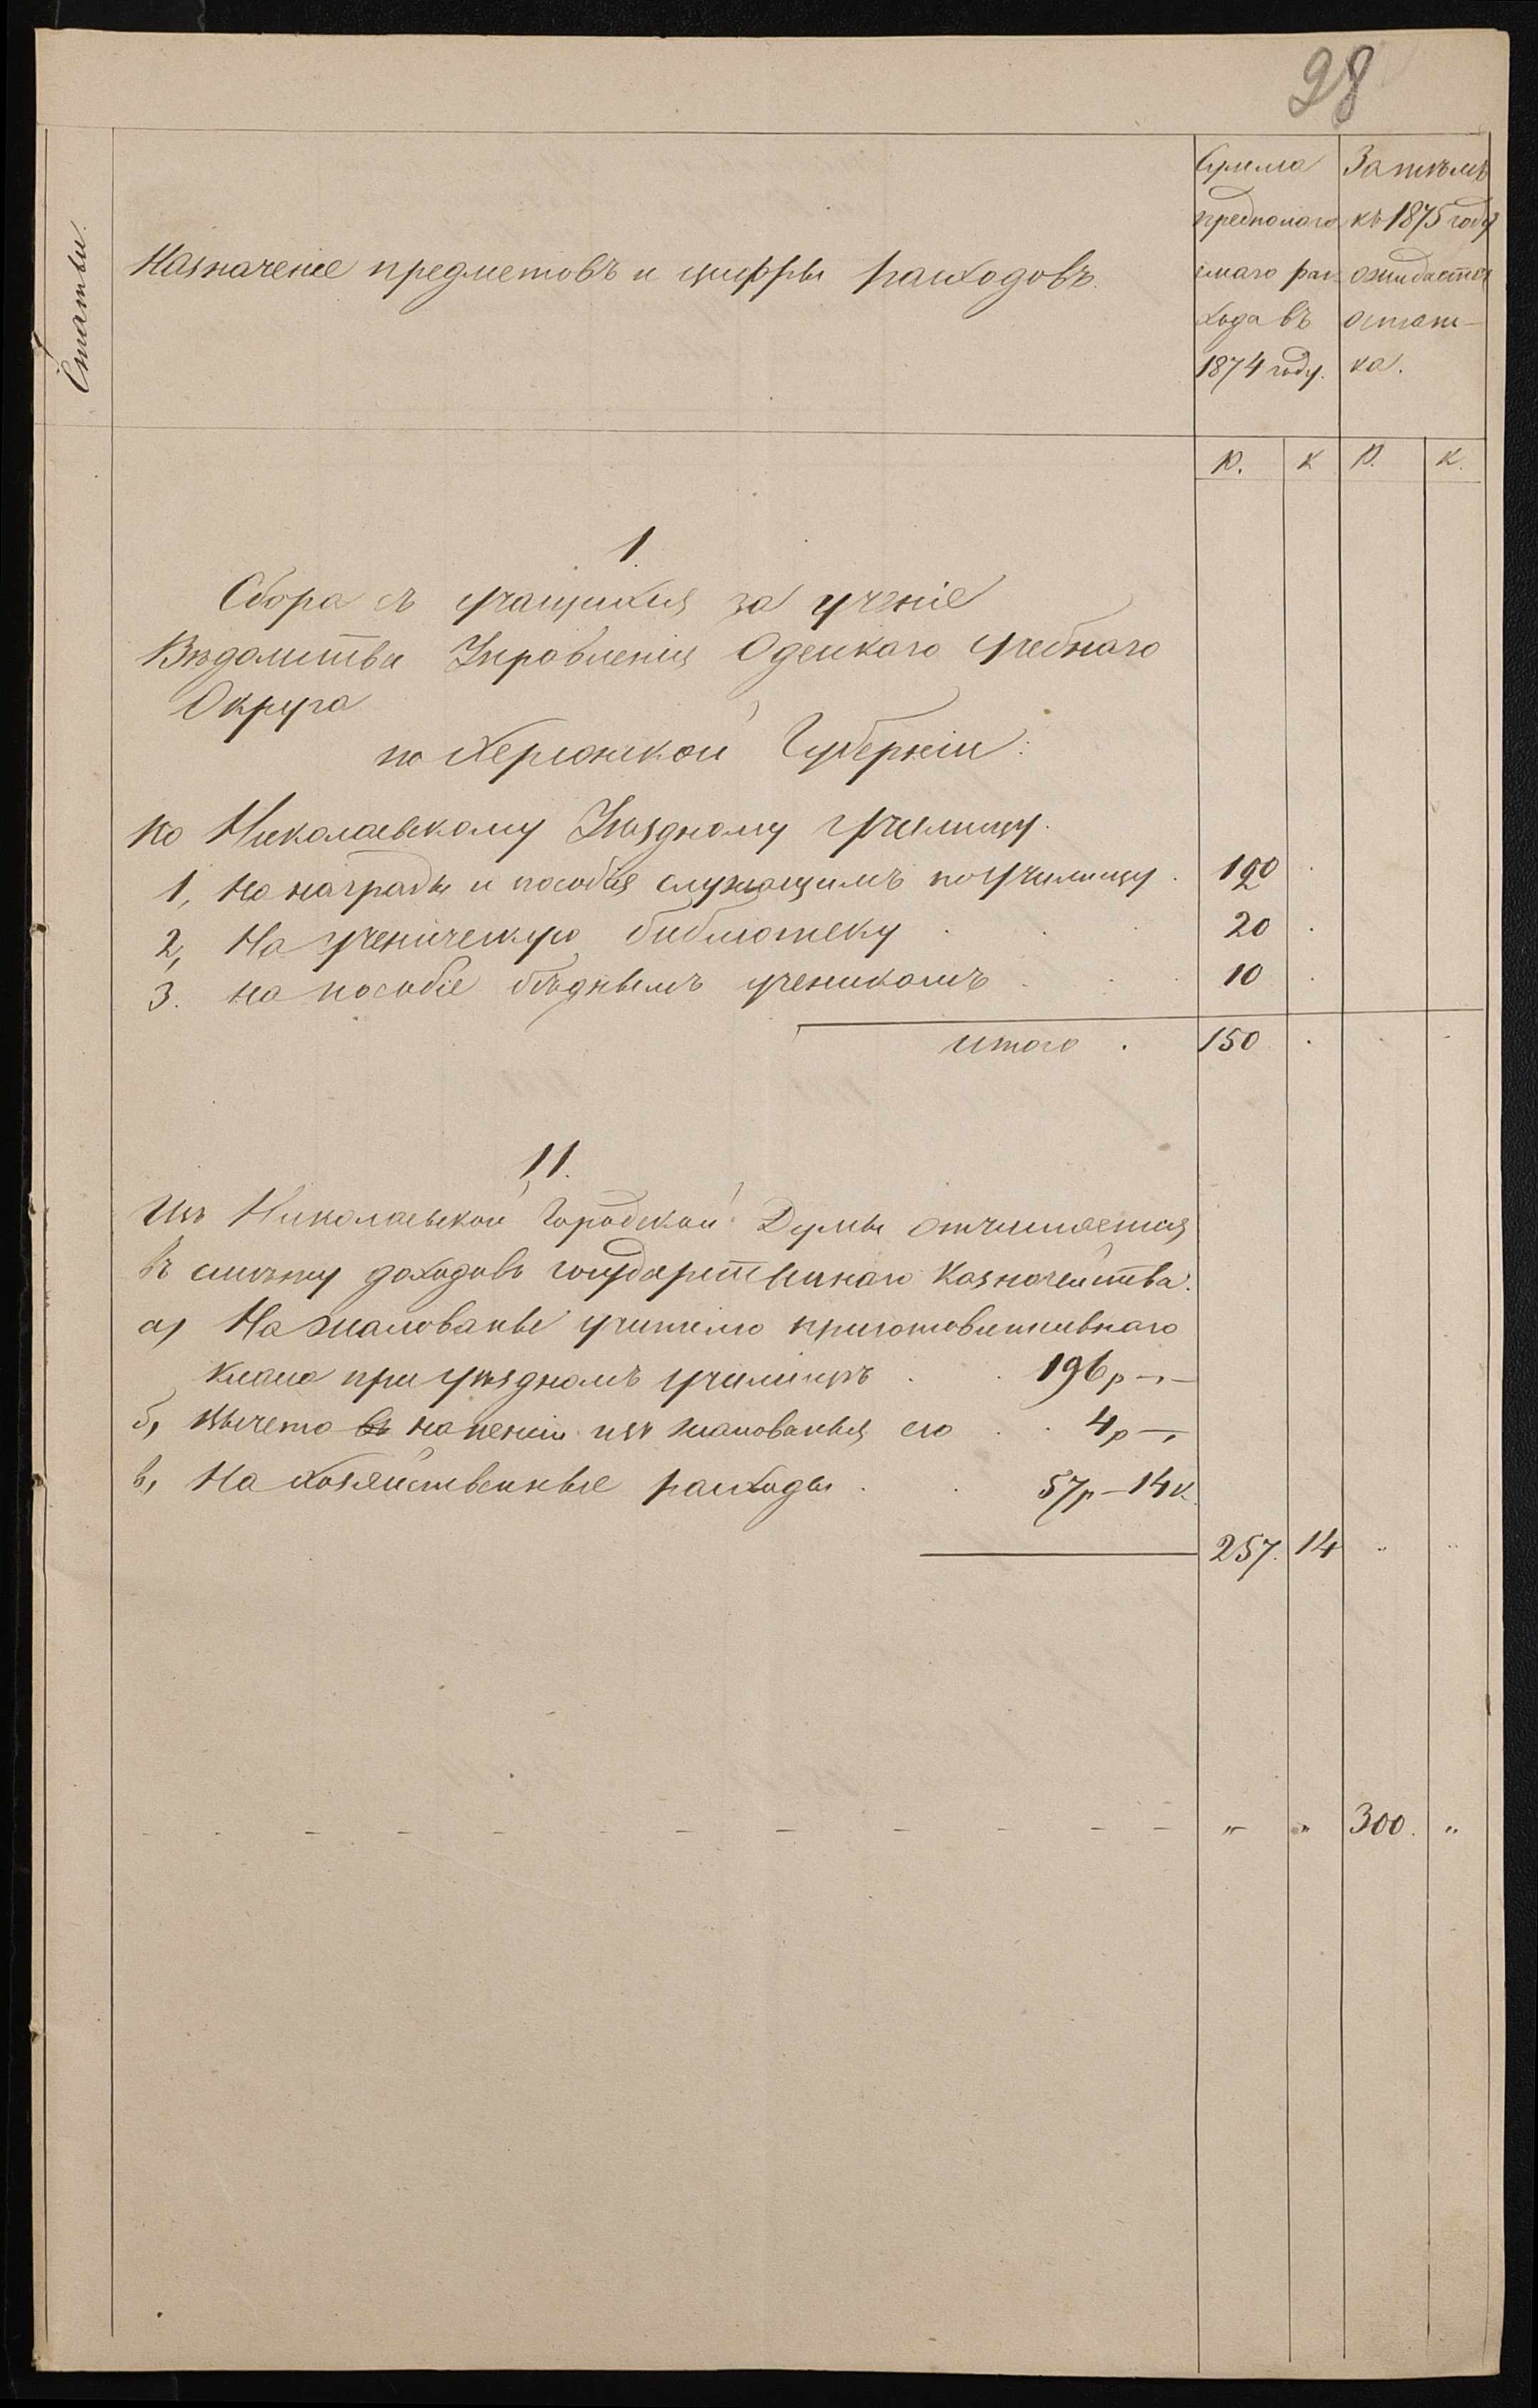 98
Статьи.
Назначеніе предметовъ и цифры расходовъ.
Сумма
предполаго
емаго рас
хода въ
1874 году.
Затѣмъ
къ 1875 году
ожидается
остат-
ка.
Р. К Р. К.
1.
Сбора съ учащихся за ученіе
Вѣдомства Управленія Одесскаго Учебнаго
Округа
по Херсонской Губерніи:
По Николаевскому Уѣздному Училищу.
1, На награды и пособія служащимъ по училищу . 120 .
2, На ученическую библіотеку . . . 20 .
3. На пособіе бѣднымъ ученикамъ . . . 10 .
Итого . 150 . . .
11.
Изъ Николаевской Городской Думы отчисляется
въ смѣту доходовъ Государственнаго Казначейства.
а) На жалованье учителю приготовительнаго
класа при уѣздномъ училищѣ . . 196 р -,-
б, вычета въ на пенсіи изъ жалованья его . . 4 р -,
в, На хозяйственные расходы . . 57 р - 14 к.
257. 14 „ „
- - - - - - - - - - - - „ „ 300. „